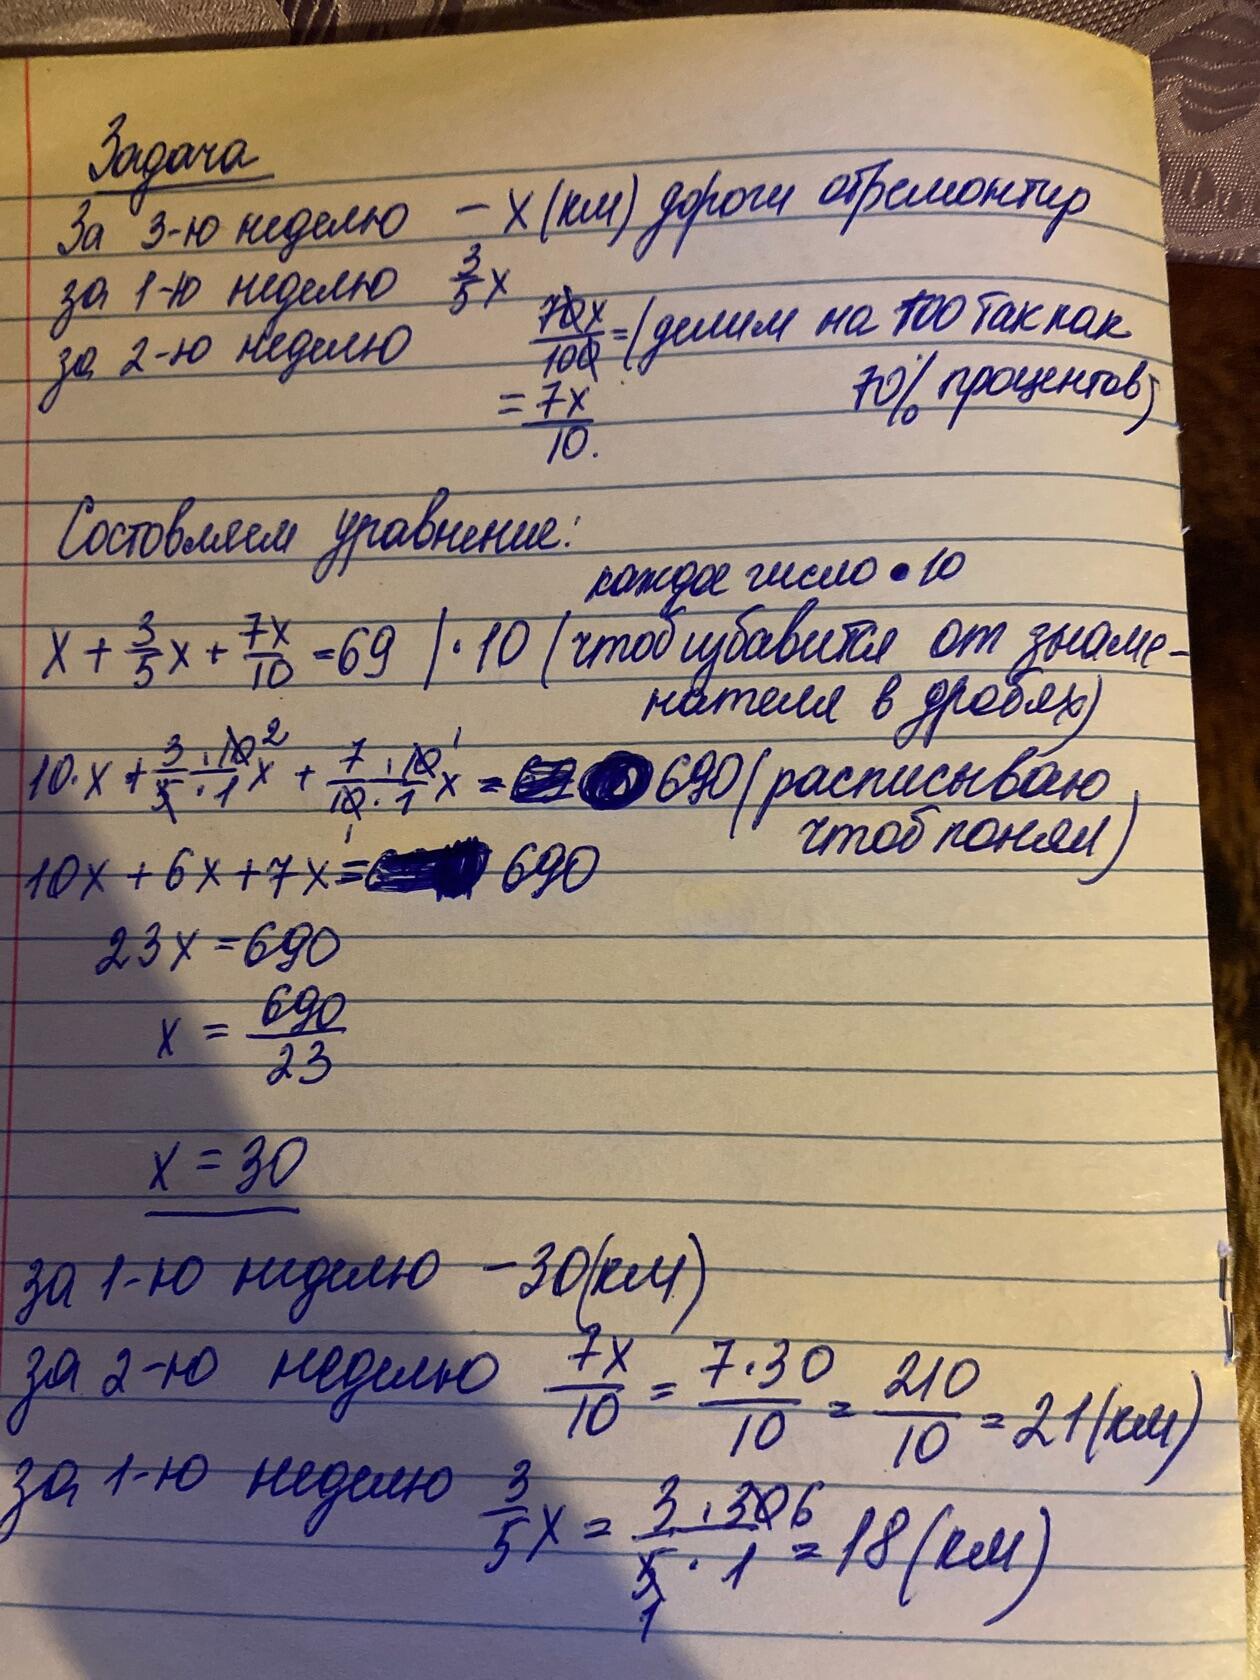 Задача
За 3-ю неделю – x (км) дороги отремонтир
за 1-ю неделю 3/5 x
за 2-ю неделю 70x/100 = (делим на 100 так как
= 7x/10. 70% процентов)
Состовляем уравнение:
каждое число • 10
x + 3/5 x + 7x/10 = 69 | · 10 (чтоб избавится от знаме-
нателя в дробях)
10·x + 3·10²/5·1 x + 7·10¹/10·1 x = 690 (расписываю
1 чтоб понял)
10x + 6x + 7x = 690
23x = 690
x = 690/23
x = 30
за 1-ю неделю – 30 (км)
за 2-ю неделю 7x/10 = 7·30/10 = 210/10 = 21 (км)
за 1-ю неделю 3/5 x = 3·30 6/5·1 = 18 (км)
1